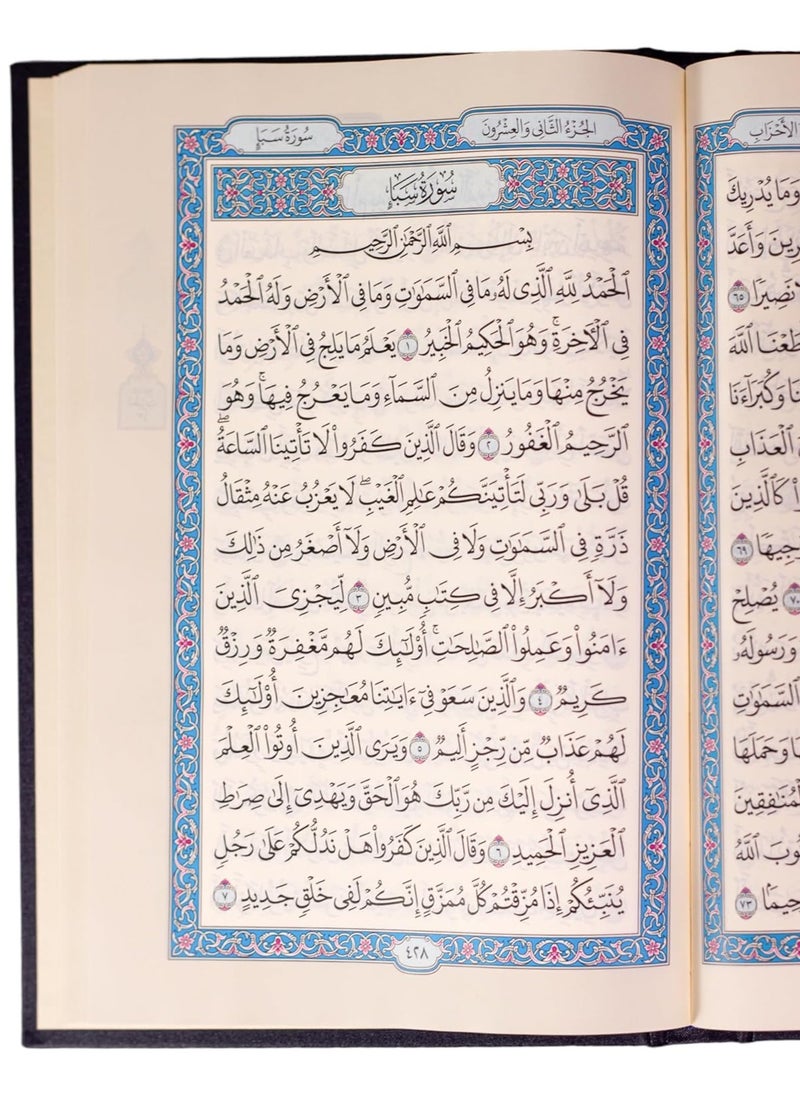 الجُزْءُ الثَّانِي وَالعِشْرُونَ
سُورَةُ سَبَإٍ
سُورَةُ سَبَإٍ
بِسْمِ ٱللَّهِ ٱلرَّحْمَٰنِ ٱلرَّحِيمِ
ٱلْحَمْدُ لِلَّهِ ٱلَّذِى لَهُۥ مَا فِى ٱلسَّمَٰوَٰتِ وَمَا فِى ٱلْأَرْضِ وَلَهُ ٱلْحَمْدُ
فِى ٱلْءَاخِرَةِۚ وَهُوَ ٱلْحَكِيمُ ٱلْخَبِيرُ ١ يَعْلَمُ مَا يَلِجُ فِى ٱلْأَرْضِ وَمَا
يَخْرُجُ مِنْهَا وَمَا يَنزِلُ مِنَ ٱلسَّمَآءِ وَمَا يَعْرُجُ فِيهَاۚ وَهُوَ
ٱلرَّحِيمُ ٱلْغَفُورُ ٢ وَقَالَ ٱلَّذِينَ كَفَرُوا۟ لَا تَأْتِينَا ٱلسَّاعَةُۖ
قُلْ بَلَىٰ وَرَبِّى لَتَأْتِيَنَّكُمْ عَٰلِمِ ٱلْغَيْبِۖ لَا يَعْزُبُ عَنْهُ مِثْقَالُ
ذَرَّةٍ فِى ٱلسَّمَٰوَٰتِ وَلَا فِى ٱلْأَرْضِ وَلَآ أَصْغَرُ مِن ذَٰلِكَ
وَلَآ أَكْبَرُ إِلَّا فِى كِتَٰبٍ مُّبِينٍ ٣ لِّيَجْزِىَ ٱلَّذِينَ
ءَامَنُوا۟ وَعَمِلُوا۟ ٱلصَّٰلِحَٰتِۚ أُو۟لَٰٓئِكَ لَهُم مَّغْفِرَةٌ وَرِزْقٌ
كَرِيمٌ ٤ وَٱلَّذِينَ سَعَوْ فِىٓ ءَايَٰتِنَا مُعَٰجِزِينَ أُو۟لَٰٓئِكَ
لَهُمْ عَذَابٌ مِّن رِّجْزٍ أَلِيمٌ ٥ وَيَرَى ٱلَّذِينَ أُوتُوا۟ ٱلْعِلْمَ
ٱلَّذِىٓ أُنزِلَ إِلَيْكَ مِن رَّبِّكَ هُوَ ٱلْحَقَّ وَيَهْدِىٓ إِلَىٰ صِرَٰطِ
ٱلْعَزِيزِ ٱلْحَمِيدِ ٦ وَقَالَ ٱلَّذِينَ كَفَرُوا۟ هَلْ نَدُلُّكُمْ عَلَىٰ رَجُلٍ
يُنَبِّئُكُمْ إِذَا مُزِّقْتُمْ كُلَّ مُمَزَّقٍ إِنَّكُمْ لَفِى خَلْقٍ جَدِيدٍ ٧
٤٢٨
الأَحْزَابِ
وَمَا يُدْرِيكَ
وَأَعَدَّ
نَصِيرًا ٦٥
ٱللَّهَ
وَكُبَرَآءَنَا
ٱلْعَذَابِ
كَٱلَّذِينَ
٦٩
يُصْلِحْ
وَرَسُولَهُۥ
ٱلسَّمَٰوَٰتِ
وَحَمَلَهَا
ٱللَّهُ
٧٣